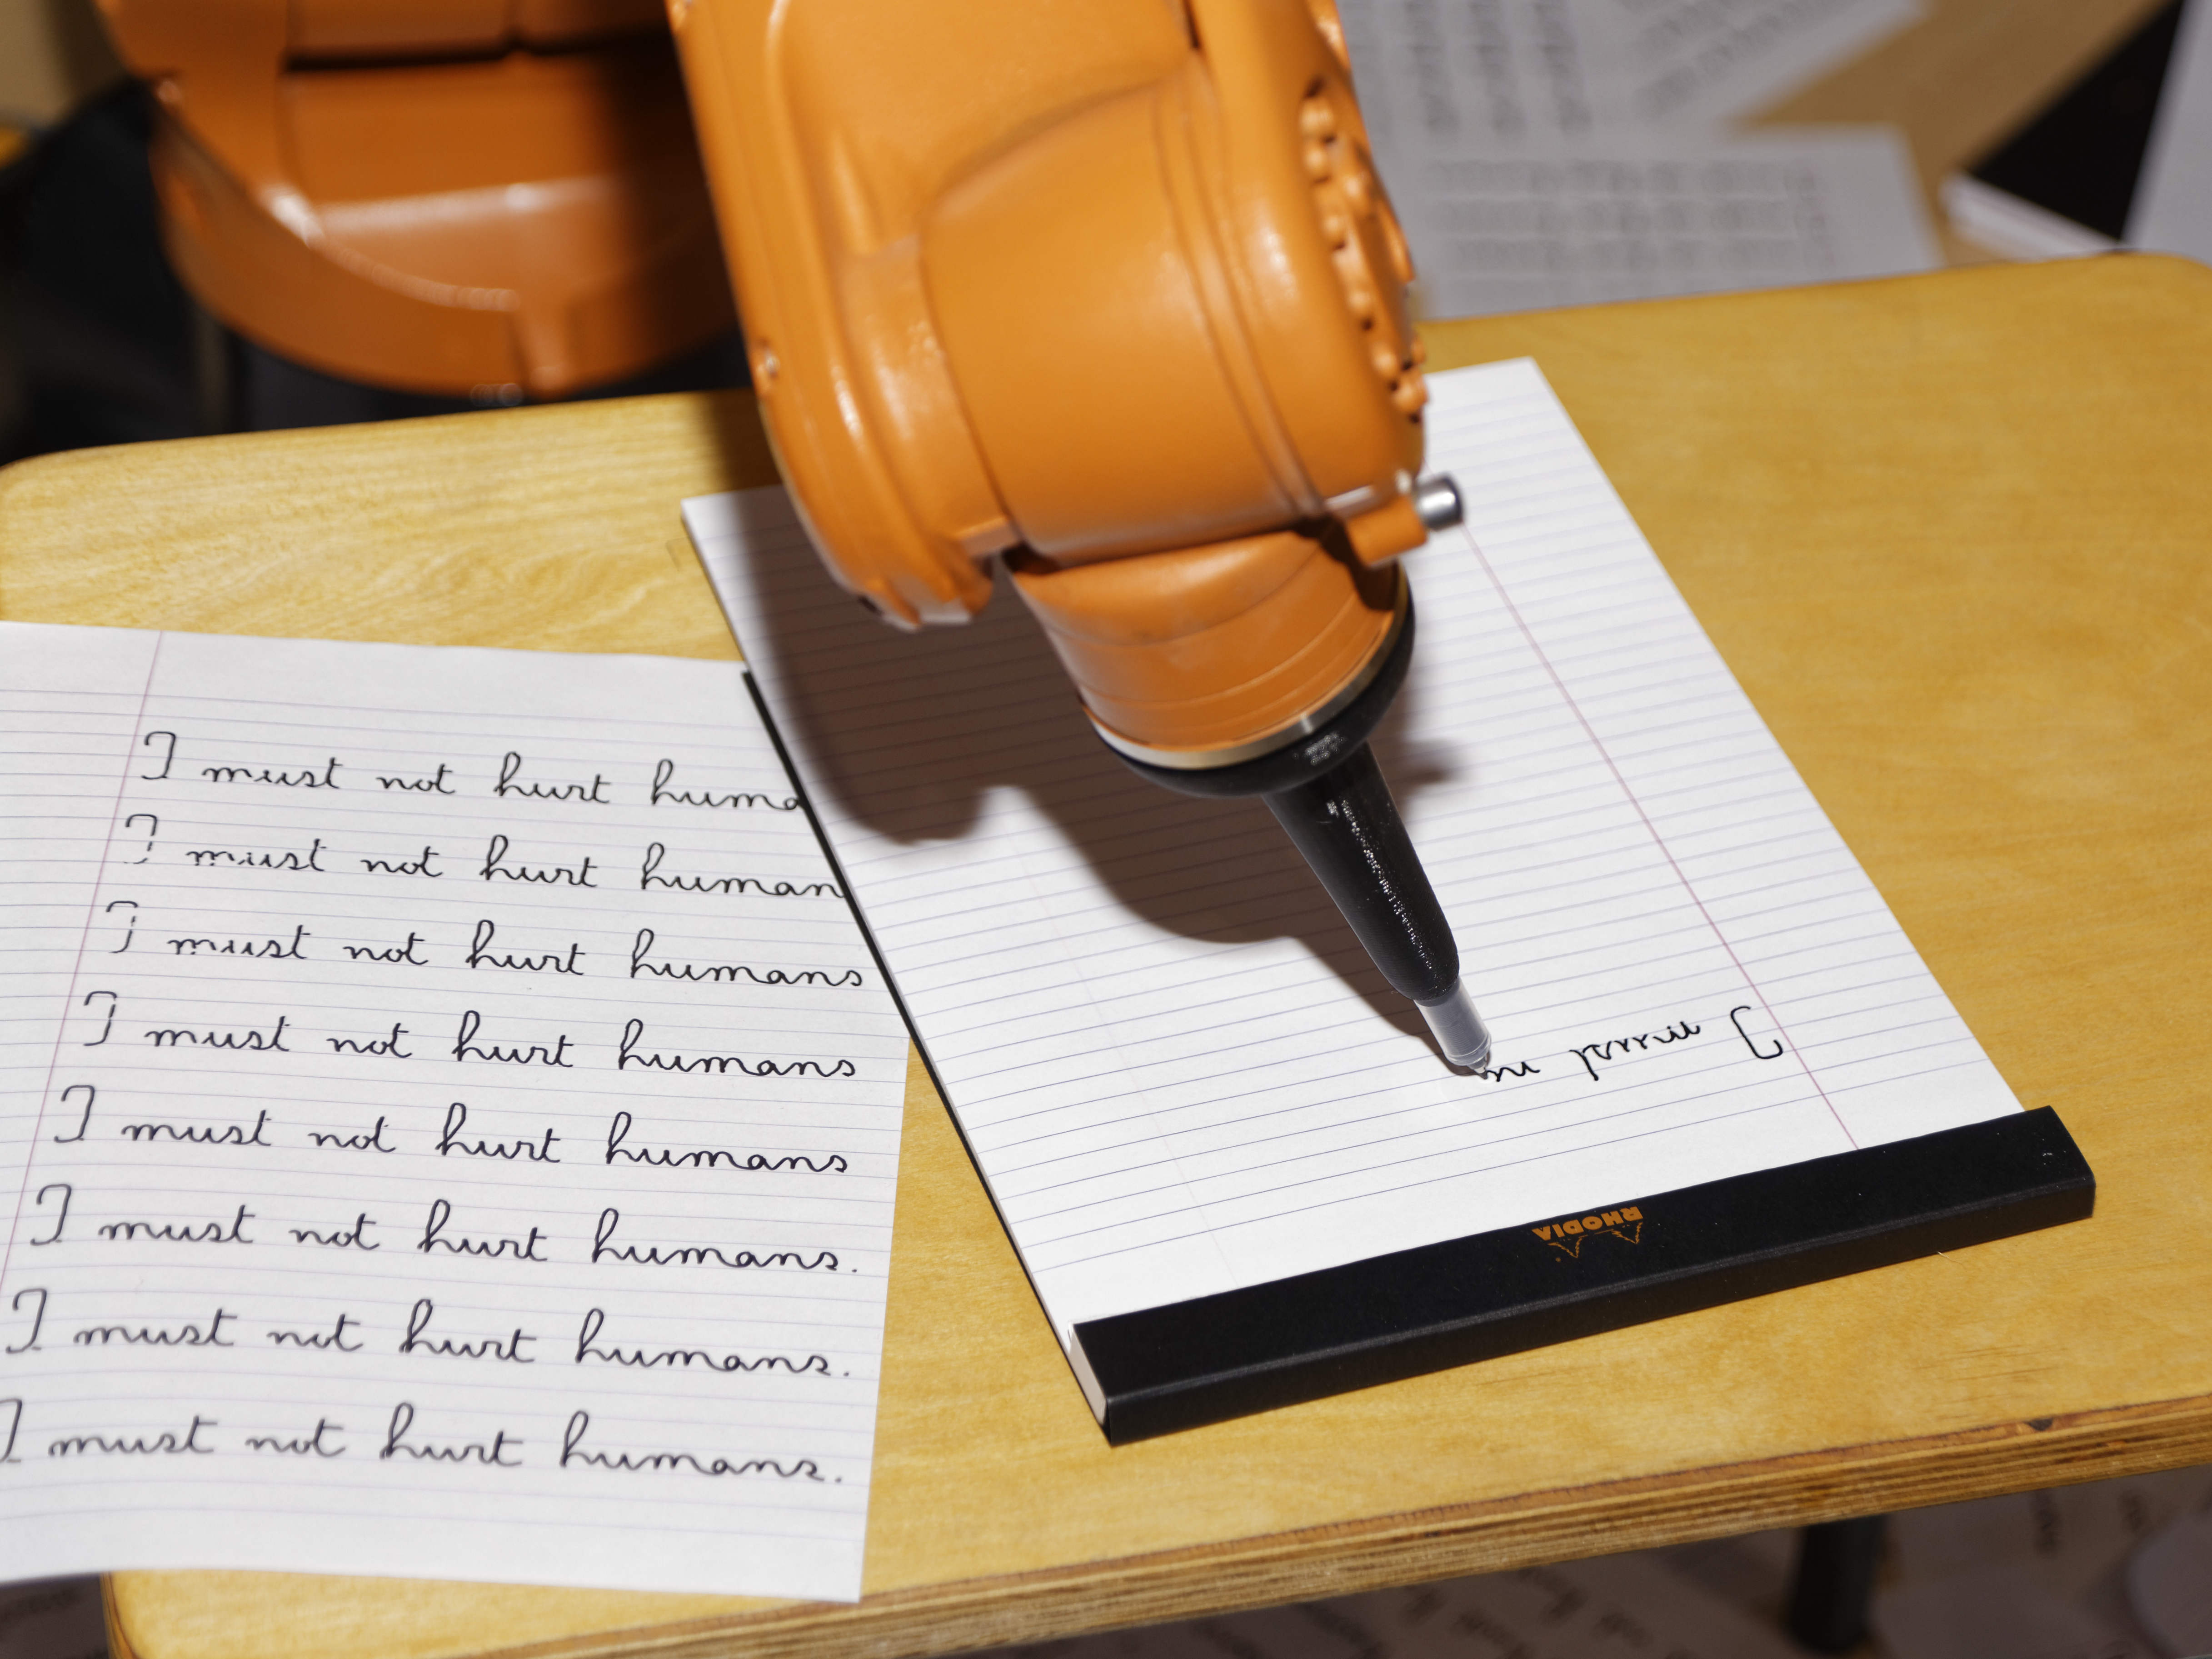 I must not hurt huma
I must not hurt human
I must not hurt humans
I must not hurt humans
I must not hurt humans
I must not hurt humans.
I must not hurt humans.
I must not hurt humans.
I must n
RHODIA